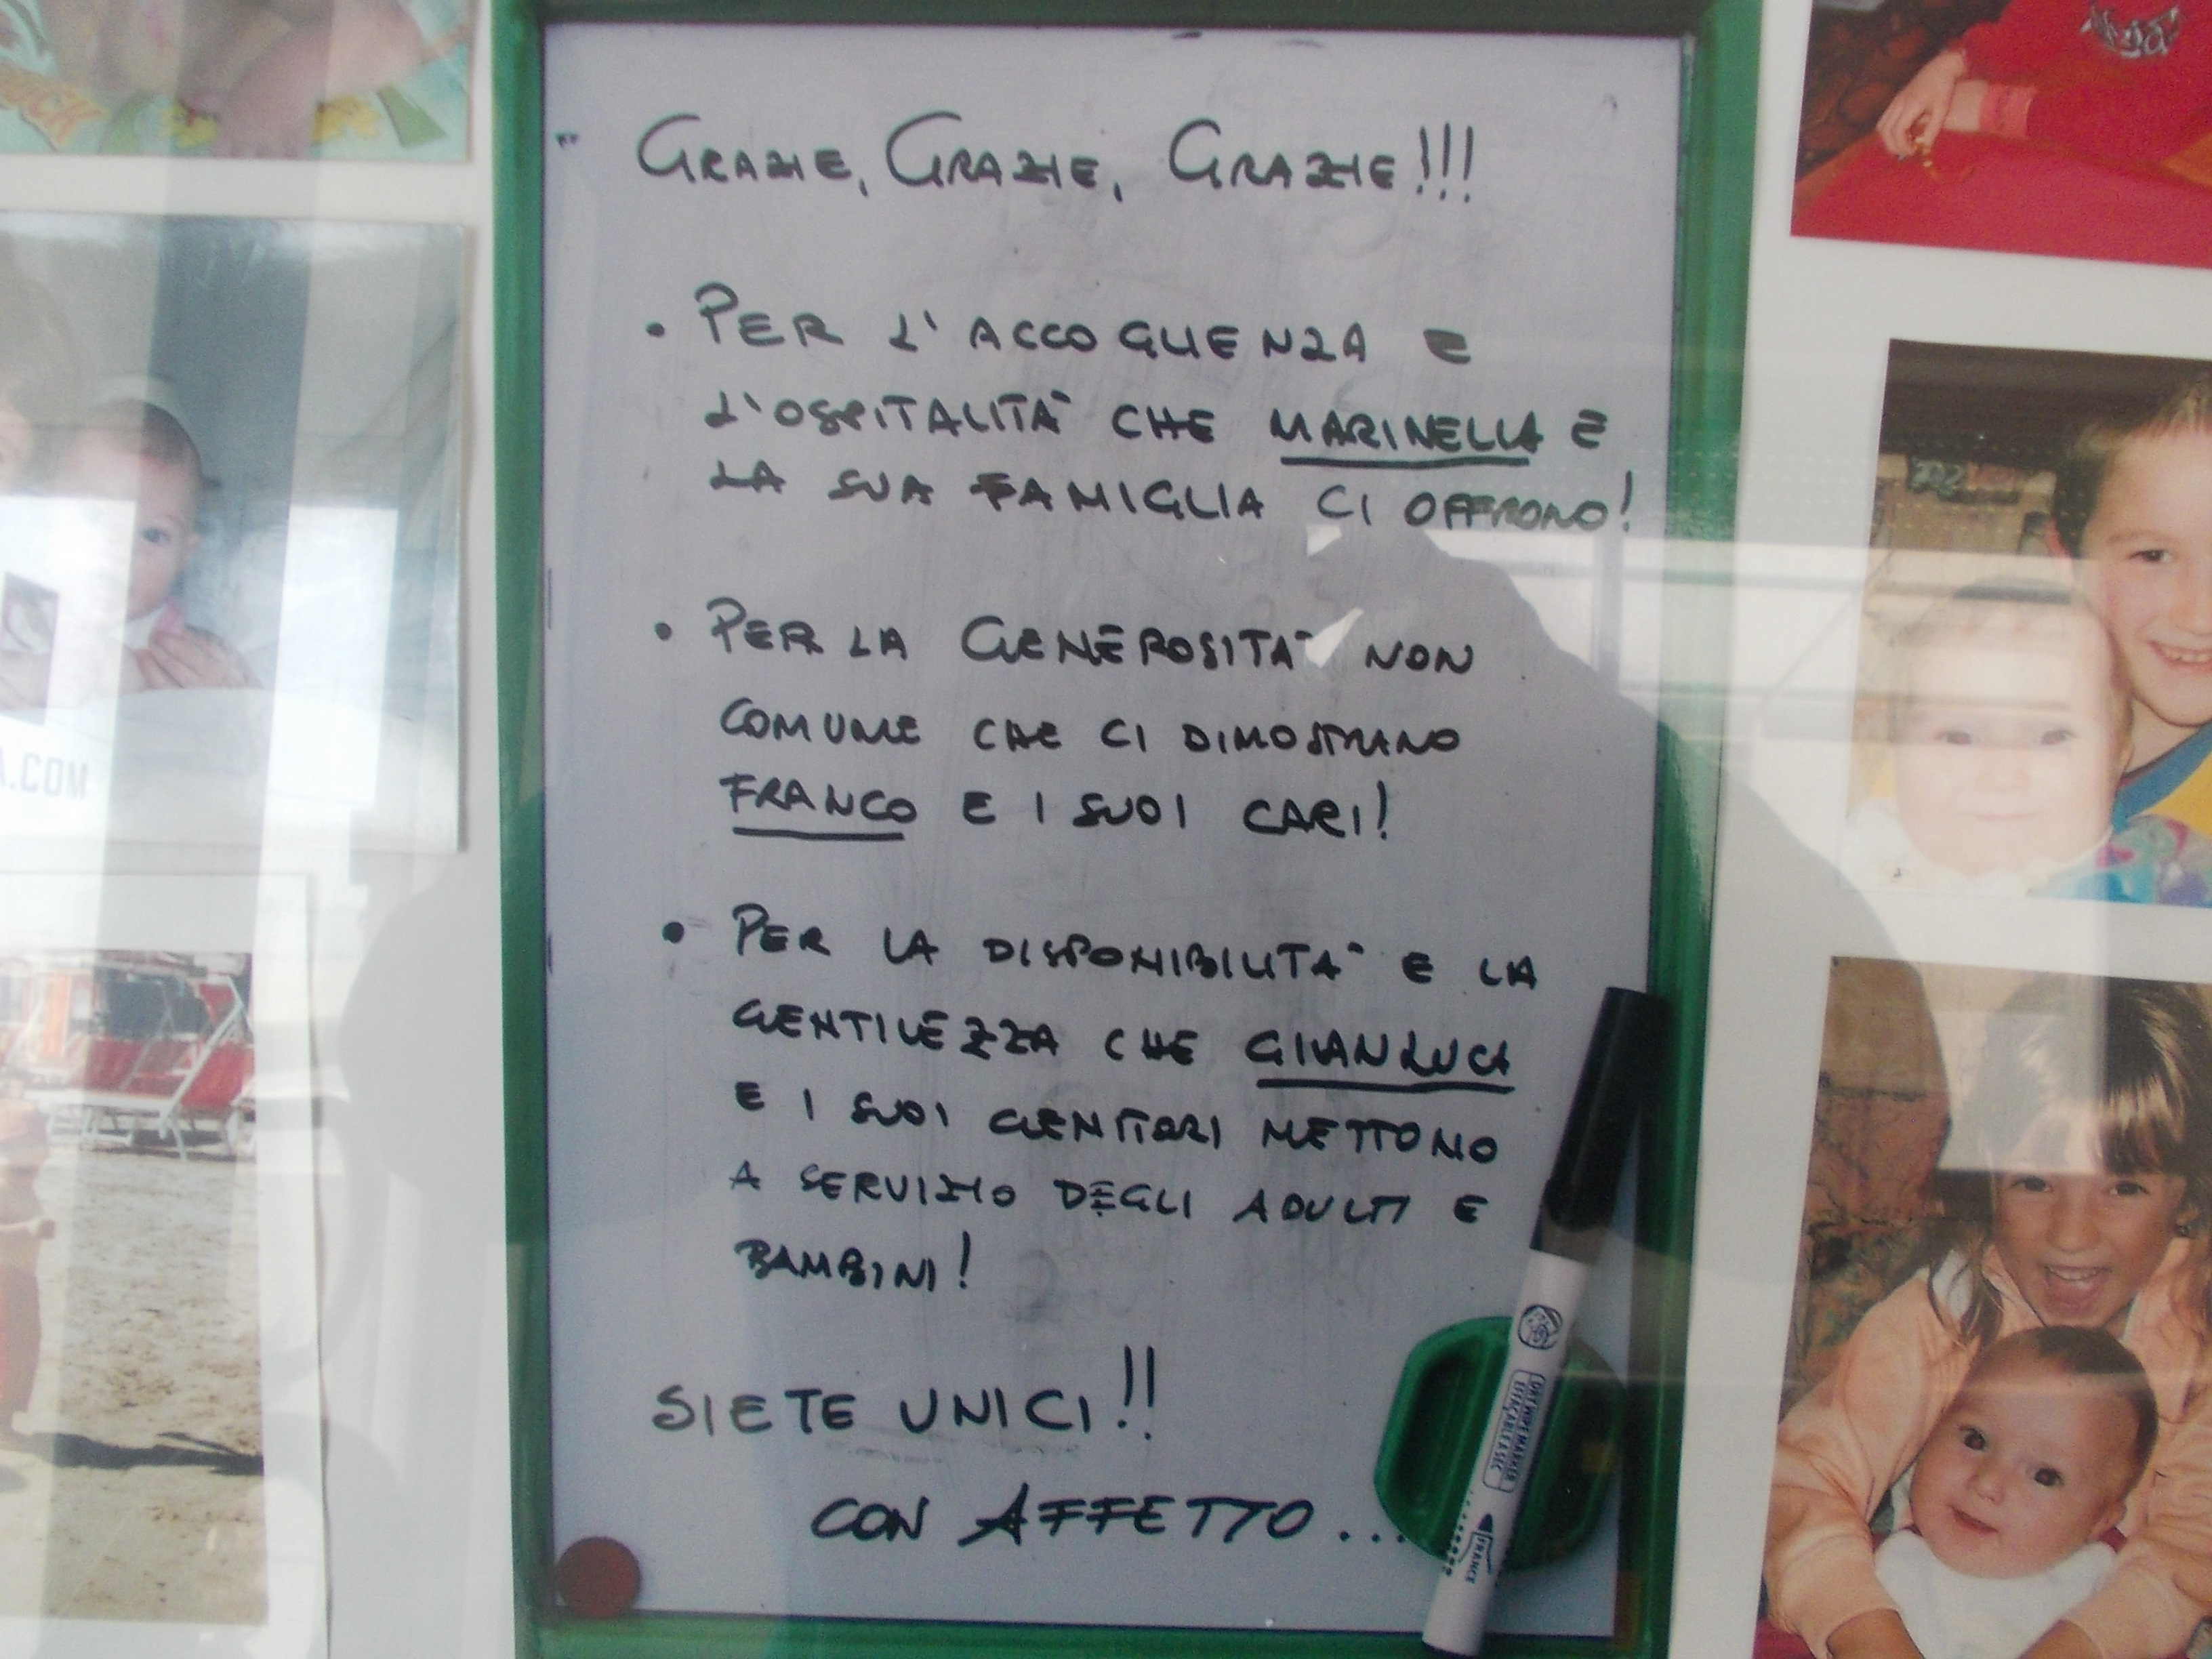 GRAZIE, GRAZIE, GRAZIE!!!
• PER L'ACCOGLIENZA E
L'OSPITALITÀ CHE MARINELLA E
LA SUA FAMIGLIA CI OFFRONO!
• PER LA GENEROSITÀ NON
COMUNE CHE CI DIMOSTRANO
FRANCO E I SUOI CARI!
• PER LA DISPONIBILITÀ E LA
GENTILEZZA CHE GIANLUCA
E I SUOI GENITORI METTONO
A SERVIZIO DEGLI ADULTI E
BAMBINI!
SIETE UNICI!!
CON AFFETTO...
DRY WIPE MARKER
EFFAÇABLE A SEC
FRANCE
A.COM